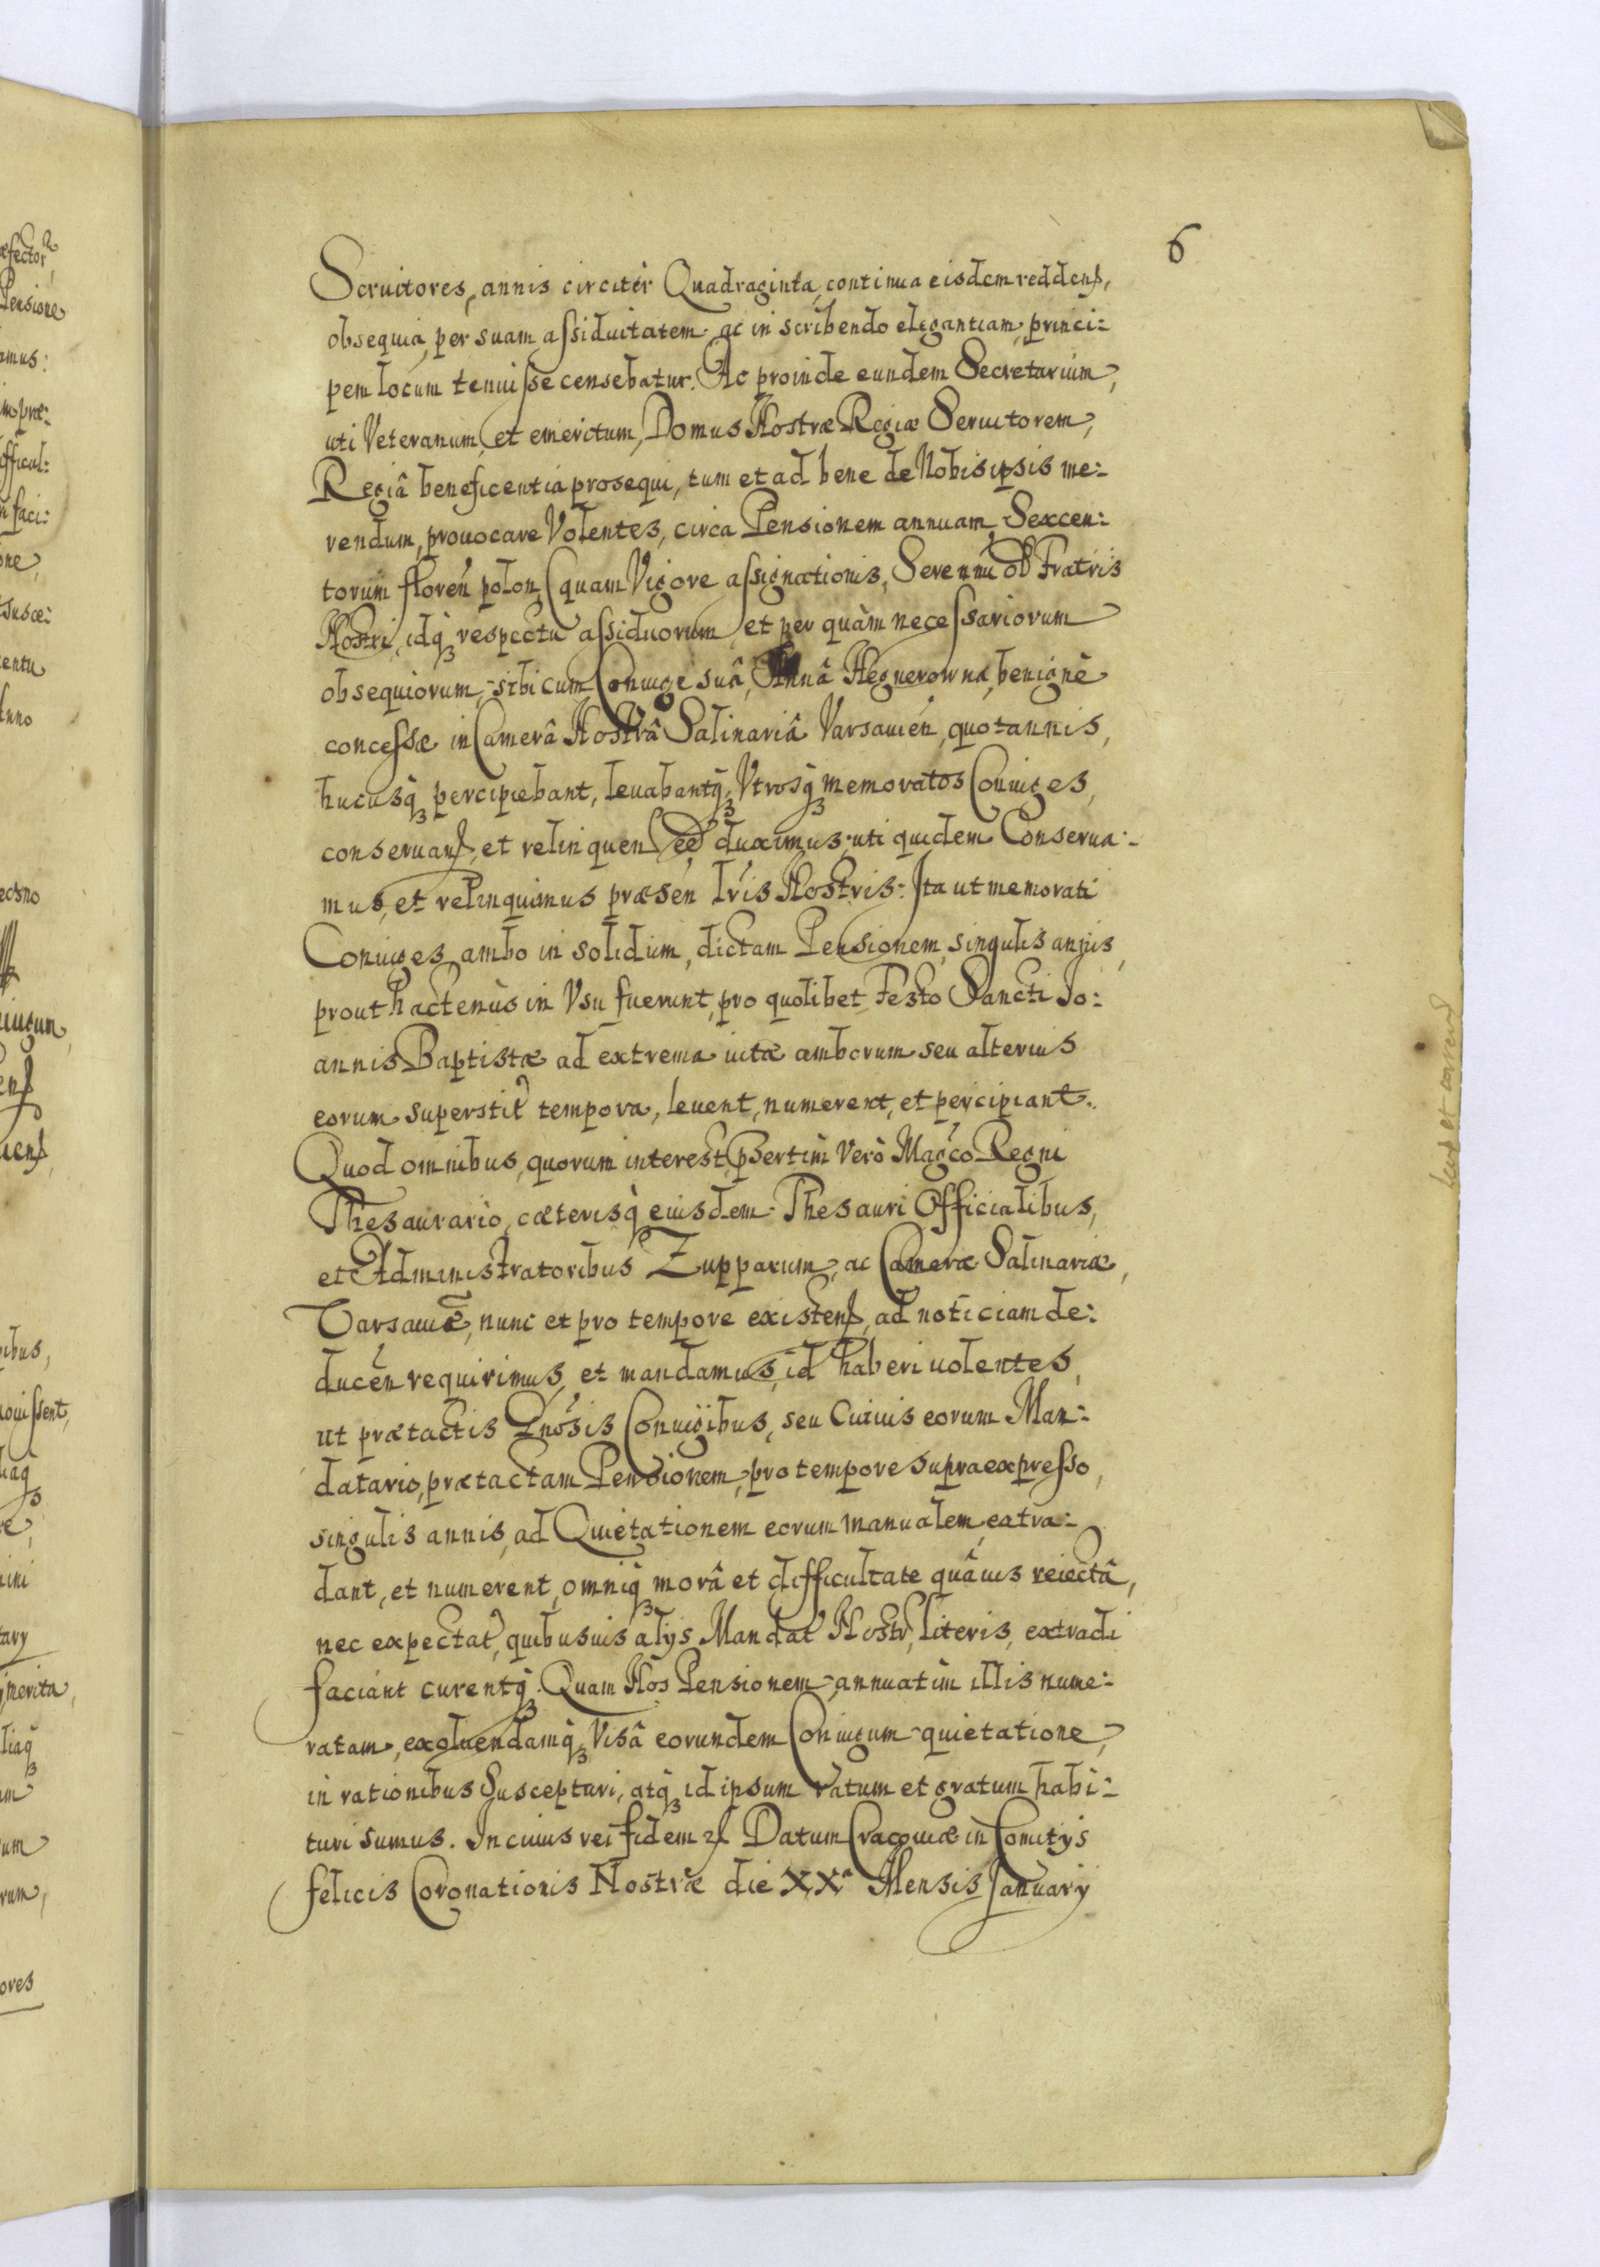 6
Seruitores, annis circitèr Quadraginta, continua eisdem reddens,
obsequia, per suam assiduitatem ac in scribendo elegantiam, princi:
pem locum tenuisse censebatur. Ac proinde eundem Secretarium,
uti Veteranum, et emeritum, Domus Nostræ Regiæ Seruitorem,
Regiâ beneficentiâ prosequi, tum et ad bene de Nobis ipsis me:
rendum, prouocare Volentes, circa Pensionem annuam, Sexcen:
torum floren polon, (quam Vigore assignationis, Serenmi olb Fratris
Nostri, idq3 respectu assiduorum, et per quàm necessariorum
obsequiorum, sibi cum Coniuge suâ, Annâ Hegnerowna, benignè
concessæ in Camerâ Nostrâ Salinariâ Varsauien, quotannis,
hucusq3 percipiebant, leuabantq3, Vtrosq3 memoratos Coniuges,
conseruans, et relinquens eẽ duximus, uti quidem Conserua:
mus, et relinquimus præsen lris Nostris: Ita ut memorati
Coniuges, ambo in solidum, dictam Pensionem, singulis annis,
prout hactenùs in Vsu fuerunt, pro quolibet Festo Sancti Jo:
annis Baptistæ ad extrema uitæ amborum seu alterius
eorum superstit tempora, leuent, numerent, et percipiant.
Quod omnibus, quorum interest, psertìm Verò Magco Regni
Thesaurario, cæterisq eiusdem Thesauri Officialibus,
et Administratoribus Zupparum, ac Cameræ Salinariæ,
Varsauiẽ, nunc et pro tempore existens, ad noticiam de:
ducen requirimus, et mandamus, id haberi uolentes,
ut prætactis Gnosis Coniugibus, seu Cuiuis eorum Man:
datario, prætactam Pensionem, pro tempore supra expresso,
singulis annis, ad Quietationem eorum manualem, extra:
dant, et numerent, omniq3 morâ et difficultate quâuis reiectâ,
nec expectat, quibusuis alijs Mandat Nostr, literis, extradi
faciant curentq3. Quam Nos Pensionem annuatìm illis nume:
ratam, exoluendamq3, Visâ eorundem Coniugum quietatione,
in rationibus Suscepturi, atq3 id ipsum ratum et gratum habi:
turi sumus. In cuius rei fidem Datum Cracouiæ in Comitijs
felicis Coronationis Nostræ die XXa Mensis Januarij